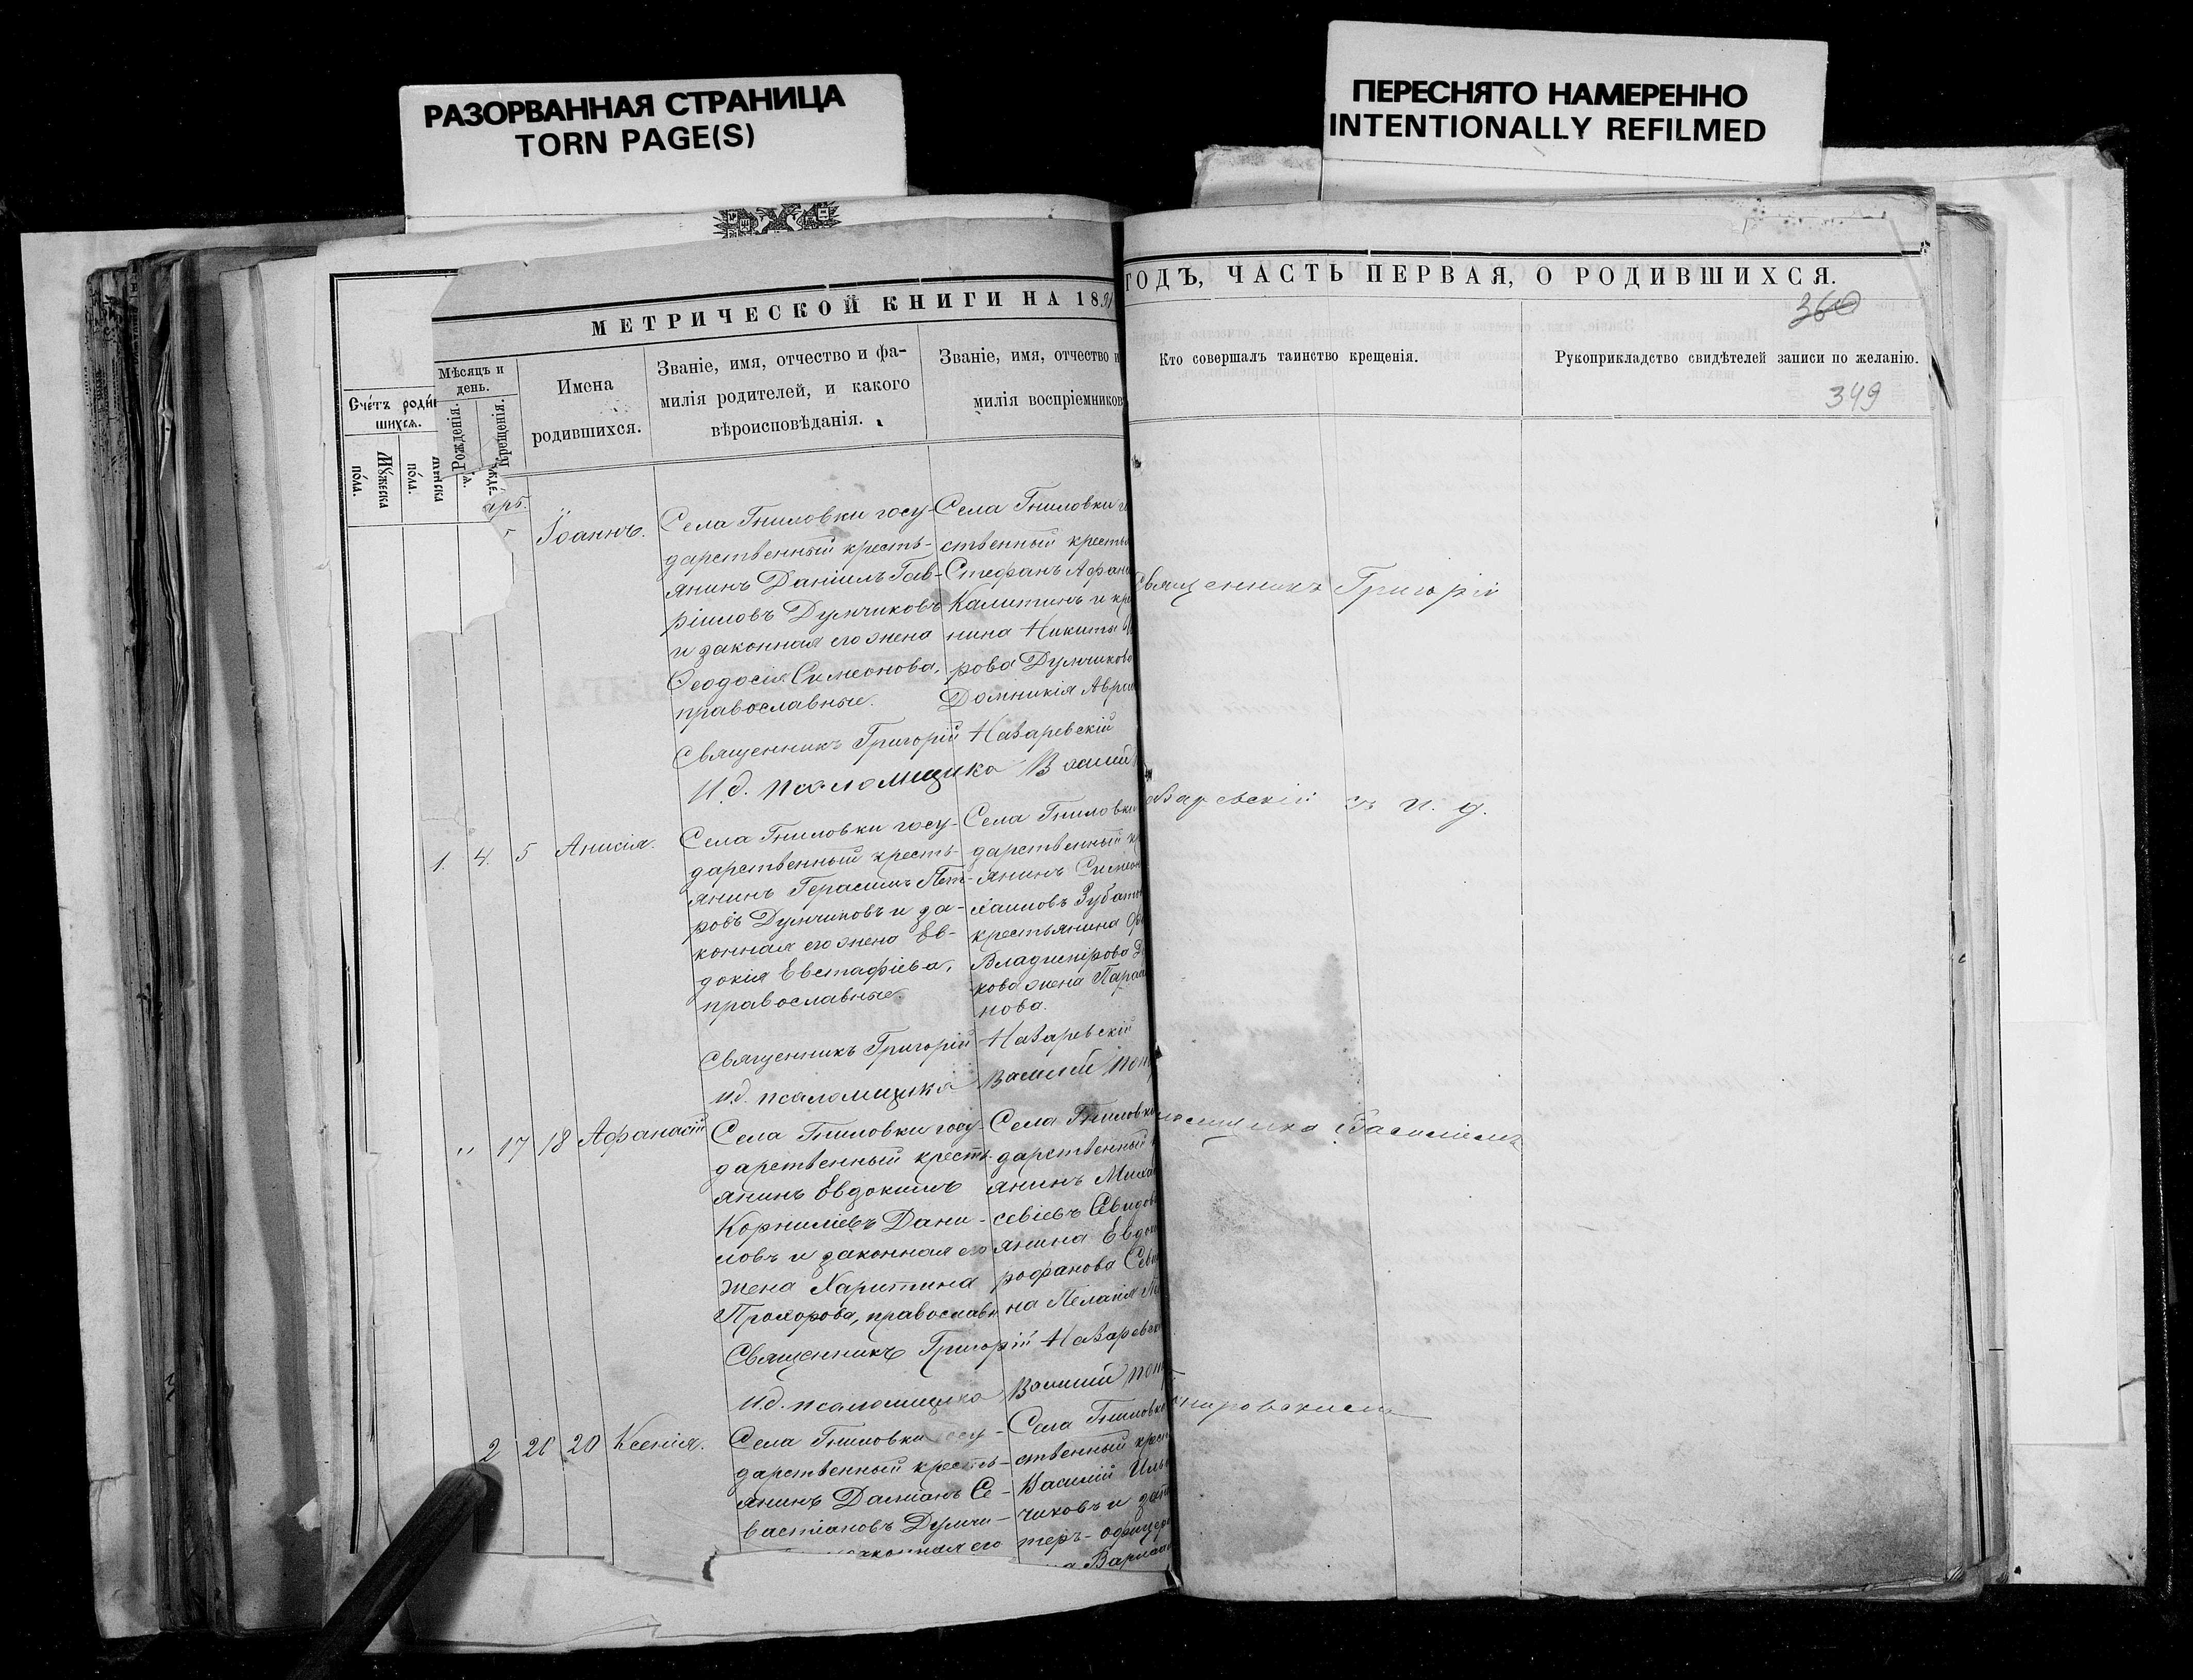 РАЗОРВАННАЯ СТРАНИЦА
TORN PAGE(S)
ПЕРЕСНЯТО НАМЕРЕННО
INTENTIONALLY REFILMED
МЕТРИЧЕСКОЙ КНИГИ НА 1891
ГОДЪ, ЧАСТЬ ПЕРВАЯ, О РОДИВШИХСЯ.
360
349
Счетъ роди
шихся.
Мужеска
пола.
пола.
Мѣсяцъ и
день.
Рожденія.
Крещенія.
Имена
родившихся.
Званіе, имя, отчество и фа-
милія родителей, и какого
вѣроисповѣданія.
Званіе, имя, отчество и
милія воспріемников
Кто совершалъ таинство крещенія.
Рукоприкладство свидѣтелей записи по желанію.
Іоаннъ.
Села Гниловки госу-
дарственный кресть-
янинъ Даніилъ Гав-
ріиловъ Думчиковъ
и законная его жена
Ѳеодосія Симеонова,
православные.
Села Гниловки г
ственный кресть
Стефанъ Афана
Калитинъ и кр
нина Никиты
рова Думчиков
Домникія Авра
Священникъ Григорій Назаревскій
И.д. псаломщика Василій
1. 4. 5 Анисія.
Села Гниловки госу-
дарственный кресть-
янинъ Герасимъ Пет-
ровъ Думчиковъ и за-
конная его жена Ев-
докія Евстафіева,
православные.
Села Гниловки
дарственный кр
янинъ Симеон
хаиловъ Зубато
крестьянина
Владимірова Д
кова жена Пара
нова.
Священникъ Григорій Назаревскій
И.д. псаломщика Василій
" 17 18 Афанасій
Села Гниловки госу-
дарственный кресть-
янинъ Евдокимъ
Корниліевъ Дани-
ловъ и законная его
жена Харитина
Прохорова, православн
Села Гниловки
дарственный
янинъ Миха
севіевъ Севидов
янина Евдок
рофанова Севи
на Пелагія
Священникъ Григорій Назаревск
И.д. псаломщика Василій
2 20 20 Ксенія.
Села Гниловки госу-
дарственный кресть-
янинъ Даміанъ Се-
вастіановъ Думчи-
законная его
Села Гниловк
ственный крес
Василій Иль
чиковъ и зап
теръ-офицер
Варлаа
Священникъ Григорій
Назаревскій съ и. д.
псаломщика Василіемъ